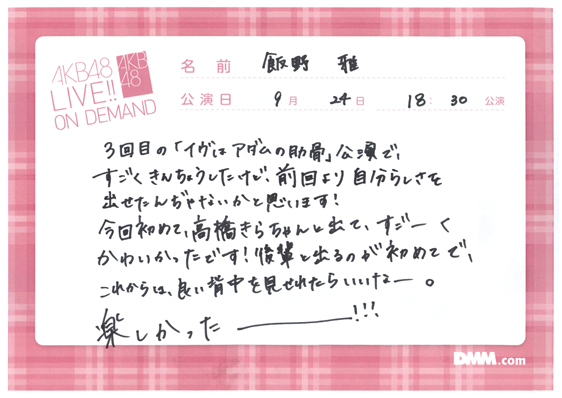 AKB48
LIVE!!
ON DEMAND
AKB
48
名前 飯野 雅
公演日 9月 24日 18:30 公演
3回目の「イヴはアダムの肋骨」公演で、
すごくきんちょうしたけど、前回より自分らしさを
出せたんぢゃないかと思います!
今回初めて、高橋きらちゃんと出て、すごーく
かわいかったです!後輩と出るのが初めてで、
これからは、良い背中を見せれたらいいなー。
楽しかったーーー!!!
DMM.com